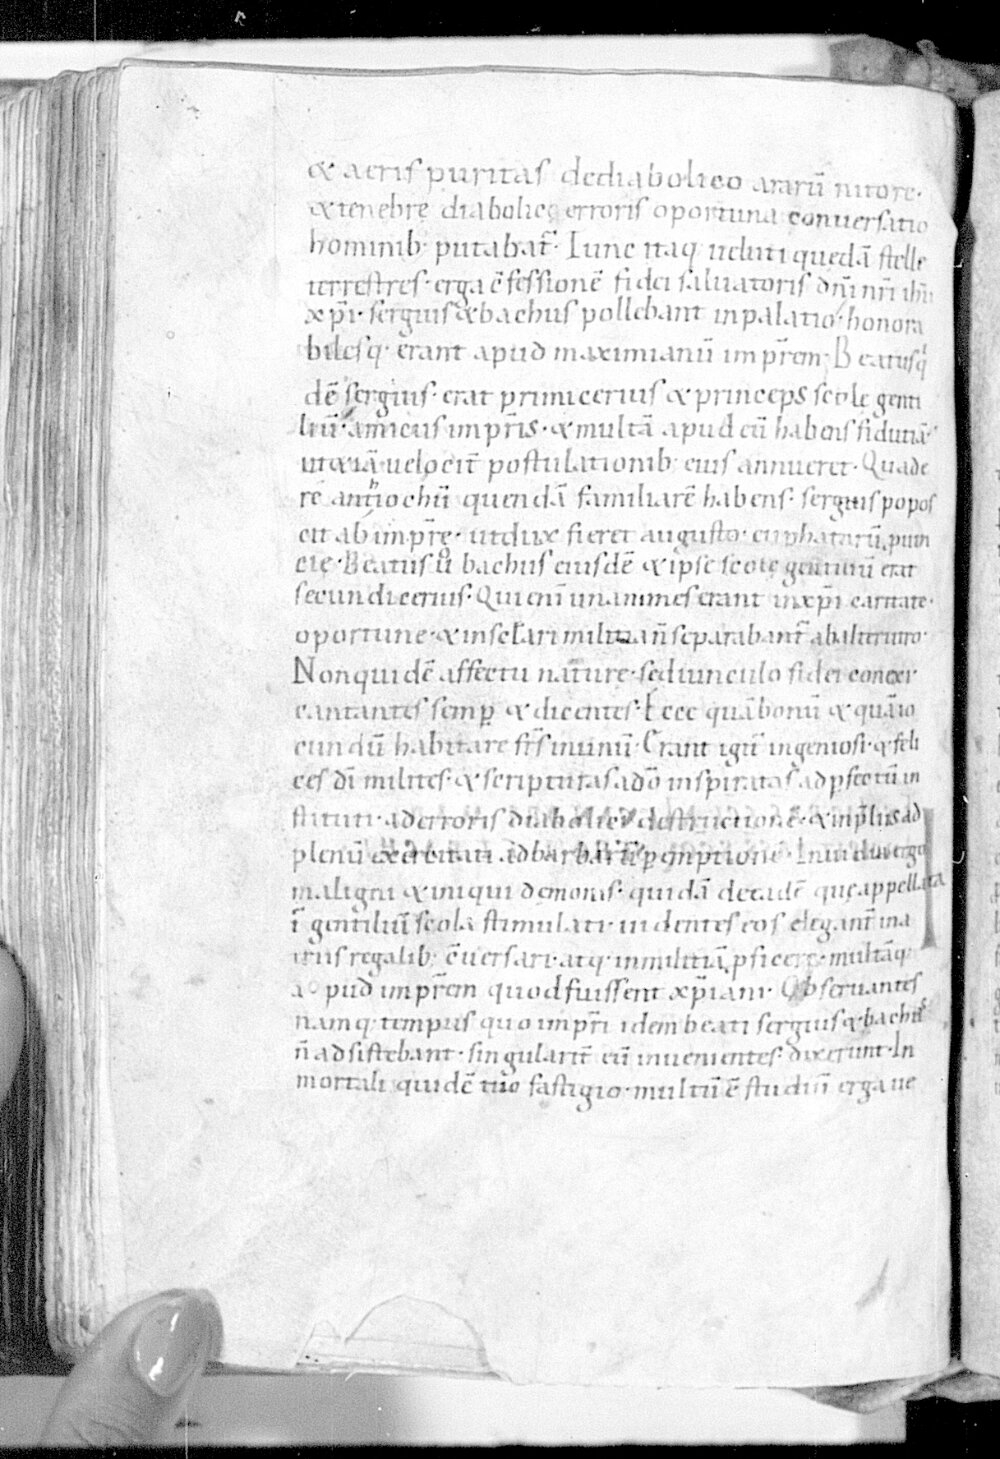 & aeris puritas dediabolico ararū nitore·
& tenebrę diabolicę erroris oportuna conuersatio
hominib· putabat̄· Tunc itaq· ueluti quedā stelle
terrestres· erga c̄fessionē fidei saluatoris dn̄i nr̄i ih̄u
xp̄i· sergius & bachus pollebant inpalatio· honora
bilesq· erant apud maximianū imp̄rem· Beatusq
dē sergius· erat primicerius & princeps scole genti
liū· amicus imp̄ris· & multā apud eū habens fiduciā·
ut & iā uelociť postulationib· eius annueret· Quade
rē antiochū quendā familiarē habens· sergius popos
cit ab imp̄re· ut dux fieret augusto· euphatarū puin
cie· Beatus u̇ bachus eiusdē & ipse scole gentiliū erat
secundicerius· Qui enī unanimes erant inxp̄i caritate·
oportune· & inseclari militia n̄ separabant̄ abalterutro·
Non quidē affectu nature· sed uinculo fidei conexi·
cantantes semp & dicentes· Ecce quā bonū & quā io
cundū habitare fr̄s inunū· Erant igit̄ ingeniosi· & feli
ces dī milites· & scripturas ado̅ inspiratas ad pfectū in
stituti· ad erroris diabolici destructionē· & inp̄liis ad
plenū exercitati ad barbarū pemptione· Inuidia ergo
maligni & iniqui demonis· quidā de eadē que appellata
ī gentiliū scola stimulati· uidentes eos eleganť ina
triis regalib· c̄uersari· atq· inmilitiā pficere· multāq·
apud imp̄rem quod fuissent xp̄iani· Obseruantes
namq· tempus quo imp̄ri idem beati sergius & bachus
n̄ adsistebant· singulariť eū inuenientes· dixerunt· In
mortali quidē tuo fastigio· multū ē studiū erga ue